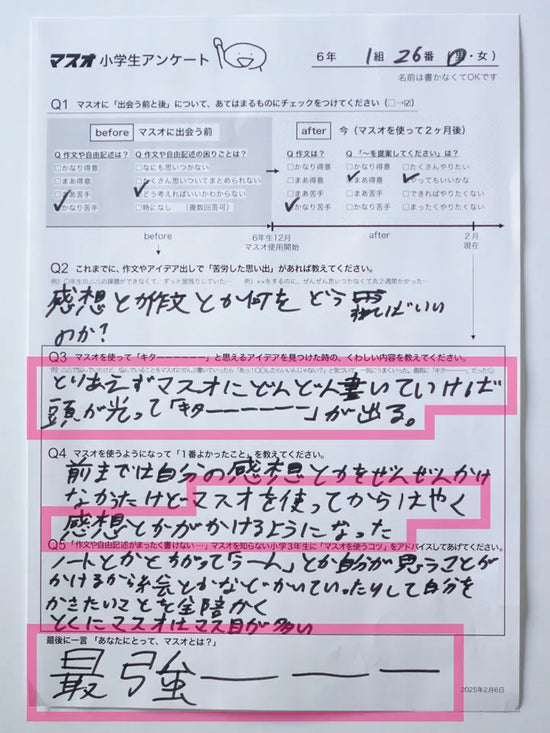 マスオ 小学生アンケート
6年 1組 26番 (男・女)
名前は書かなくてOKです
Q1 マスオに「出会う前と後」について、あてはまるものにチェックをつけてください(□→☑)
before マスオに出会う前
after 今(マスオを使って2ヶ月後)
Q 作文や自由記述は?
□かなり得意
□まあ得意
□まあ苦手
□かなり苦手
Q 作文や自由記述の困りごとは?
□なにも思いつかない
□たくさん思いついてまとめられない
□どう考えればいいかわからない
□特になし (複数回答可)
Q 作文は?
□かなり得意
□まあ得意
□まあ苦手
□かなり苦手
Q 「〜を提案してください」は?
□かなり得意
□まあ得意
□まあ苦手
□かなり苦手
□たくさんやりたい
□やってもいいかな
□できればやりたくない
□まったくやりたくない
before
6年生12月
マスオ使用開始
after
2月
現在
Q2 これまでに、作文やアイデア出しで「苦労した思い出」があれば教えてください。
感想とか作文とか何をどう
ばいい
のか?
Q3 マスオを使って「キターーーーーー」と思えるアイデアを見つけた時の、くわしい内容を教えてください。
とりあえずマスオにどんどん書いていけば
頭が光って「キターーーーーー」が出る。
Q4 マスオを使うようになって「1番よかったこと」を教えてください。
前までは自分の感想とかをぜんぜんかけ
なかったけどマスオを使ってからはやく
感想とかがかけるようになった
Q5 「作文や自由記述がまったく書けない…」マスオを知らない小学3年生に「マスオを使うコツ」をアドバイスしてあげてください。
ノートとかとちがってらーん」とか自分が思うことが
かけるから絵とかなどかいていったりして自分を
かきたいことを全
かく
とくにマスオはマス目が多い
最後に一言「あなたにとって、マスオとは?」
最強ーーー
2025年2月6日